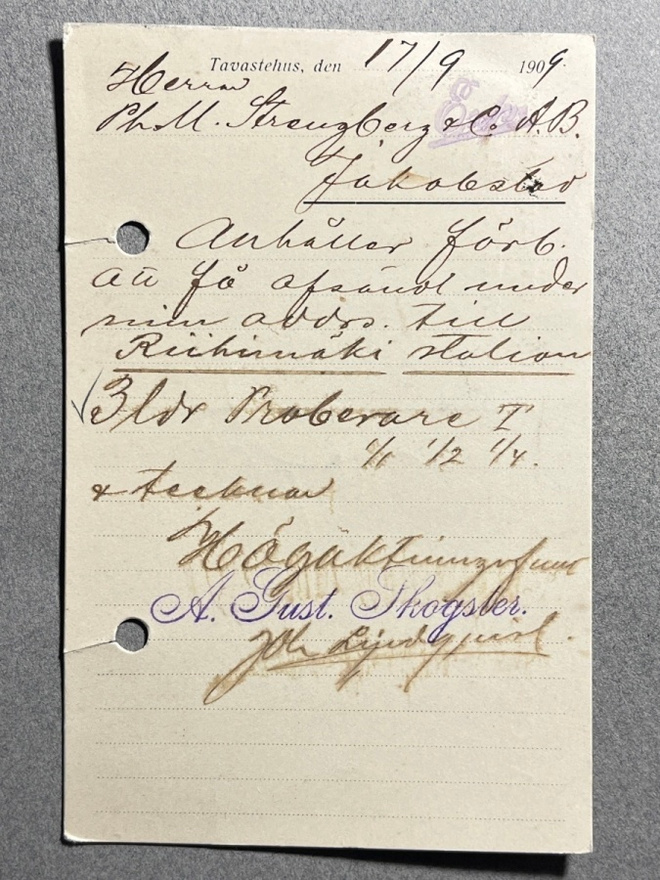 Tavastehus, den 17/9 1909.
Herrar
Ph. U. Strengberg & Co. A. B.
Jakobstad
Anhåller förb.
att få afsändt under
min addrs. till
Riihimäki station
3 ldr Proberare I
1/1 1/2 1/4.
& tecknar
Högaktningsfullt
A. Gust. Skogster.
Joh Lindqvist.